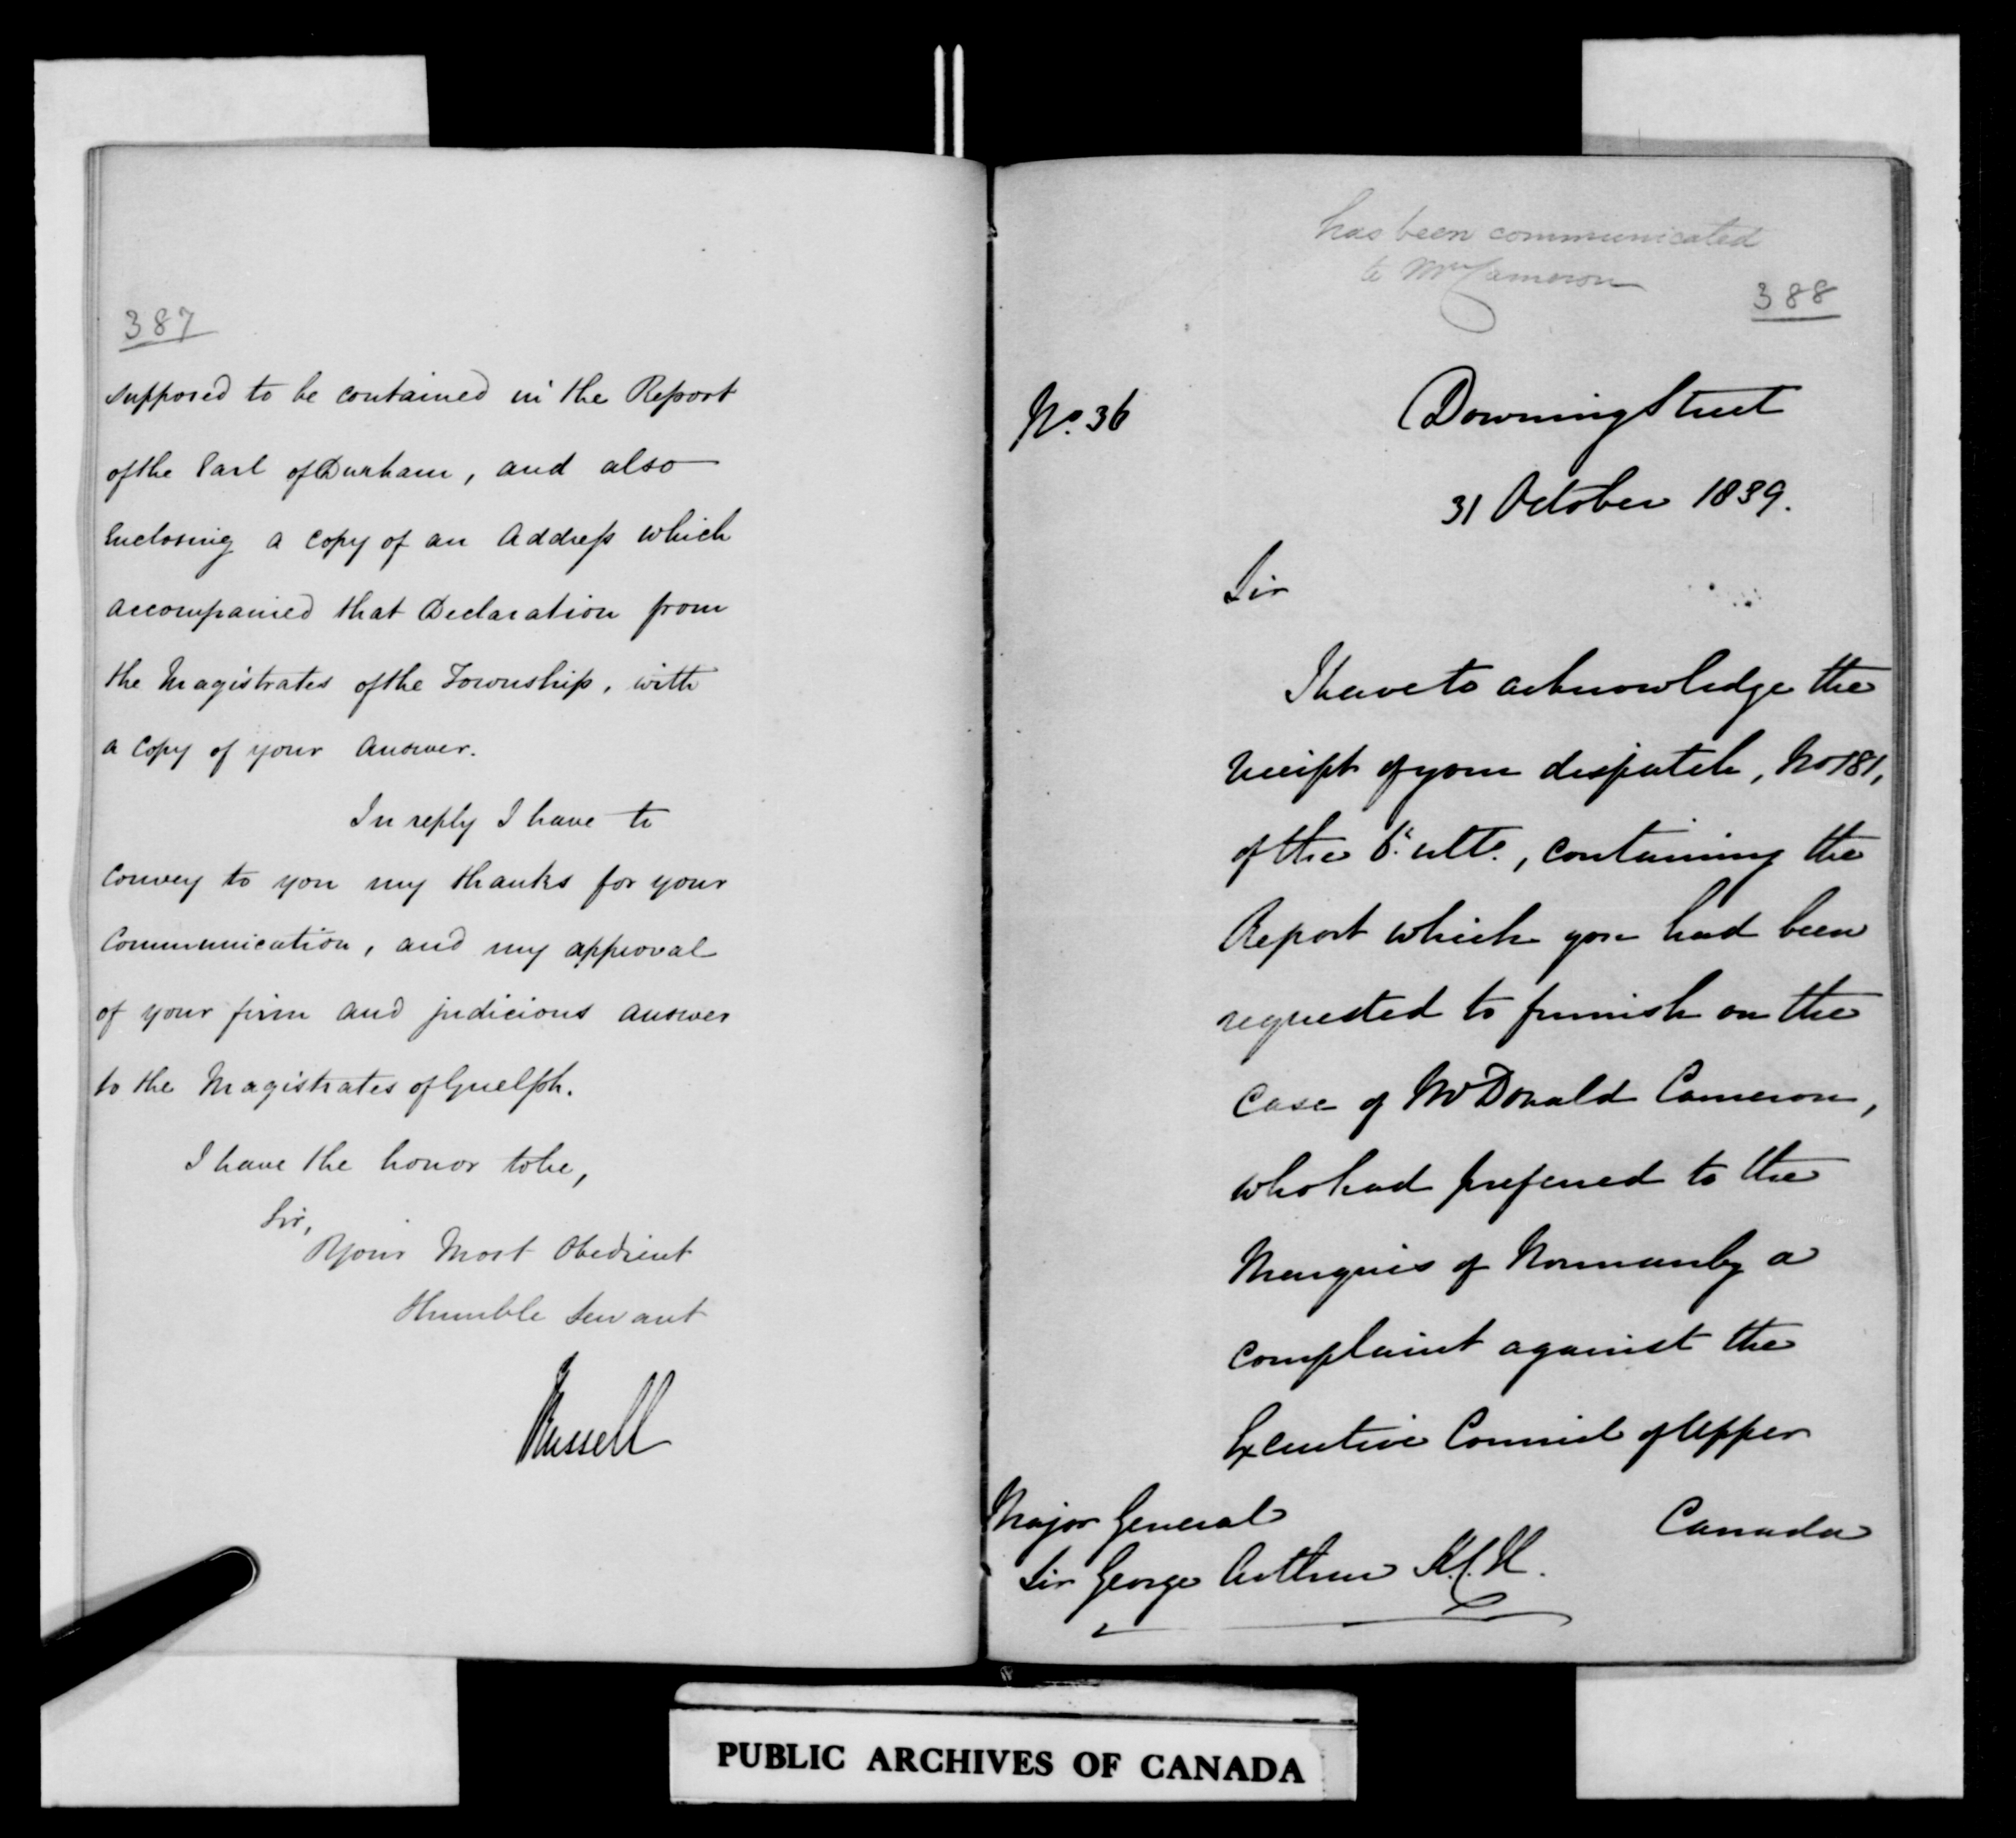 387
supposed to be contained in the Report
of the Earl of Durham, and also
enclosing a copy of an Address which
accompanied that Declaration from
the Magistrates of the Township, with
a Copy of your Answer.
In reply I have to
convey to you my thanks for your
Communication, and my approval
of your firm and judicious answer
to the Magistrates of Guelph.
I have the honor to be,
Sir,
Your Most Obedient
Humble Servant
JRussell
has been communicated
to Mr Cameron
388
No. 36
Downing Street
31 October 1839.
Sir
I have to acknowledge the
receipt of your despatch, No 181,
of the 6th ulto., containing the
Report which you had been
requested to furnish on the
case of Mr Donald Cameron,
who had preferred to the
Marquis of Normanby a
complaint against the
Executive Council of Upper
Canada
Major General
Sir George Arthur K.C.H.
PUBLIC ARCHIVES OF CANADA